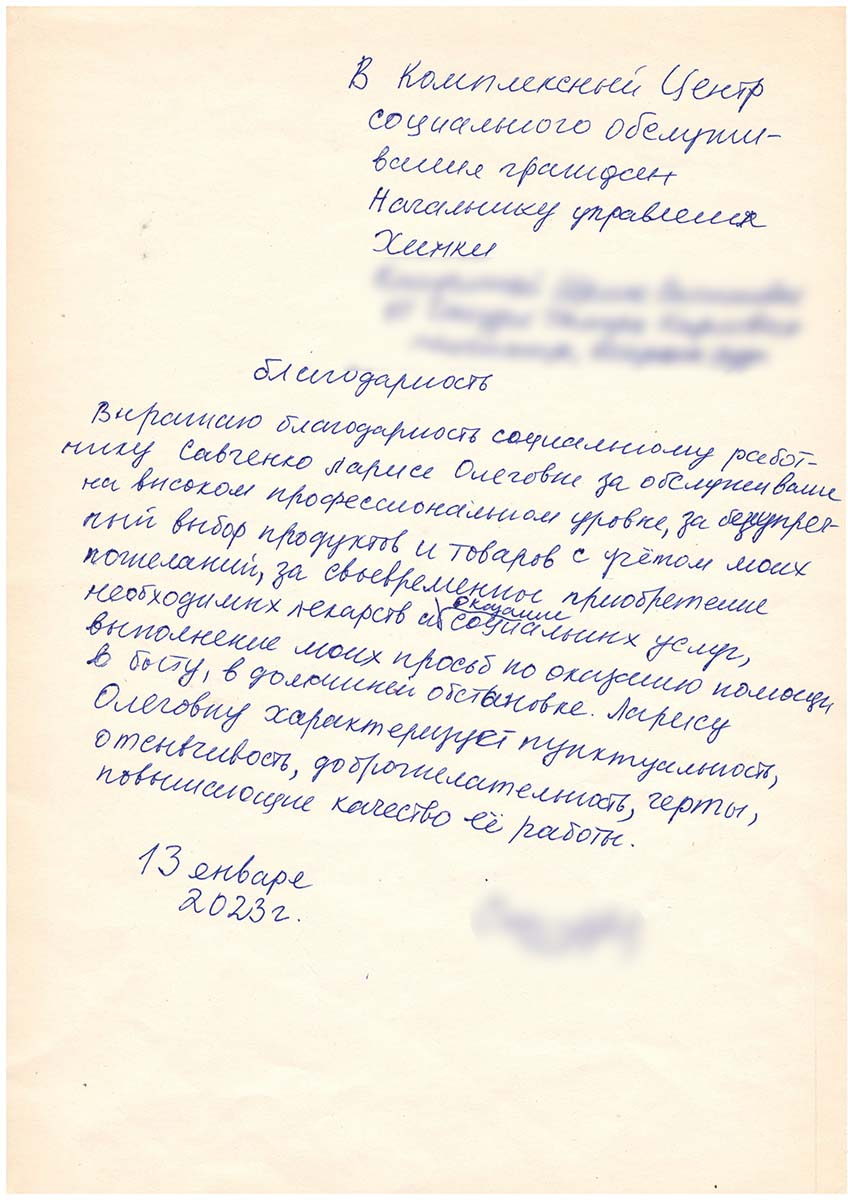 В Комплексный Центр
социального обслужи-
вания граждан
Начальнику управления
Химки
благодарность
Выражаю благодарность социальному работ-
нику Савченко Ларисе Олеговне за обслуживание
на високом профессиональном уровне, за безупреч-
ный выбор продуктов и товаров с учётом моих
пожеланий, за своевременные приобретение
необходимых лекарств и оказание социальных услуг,
выполнение моих просьб по оказанию помощи
в быту, в домашней обстановке. Ларису
Олеговну характеризует пунктуальность,
отзывчивость, доброжелательность, черты,
повышающие качество её работы.
13 января
2023г.